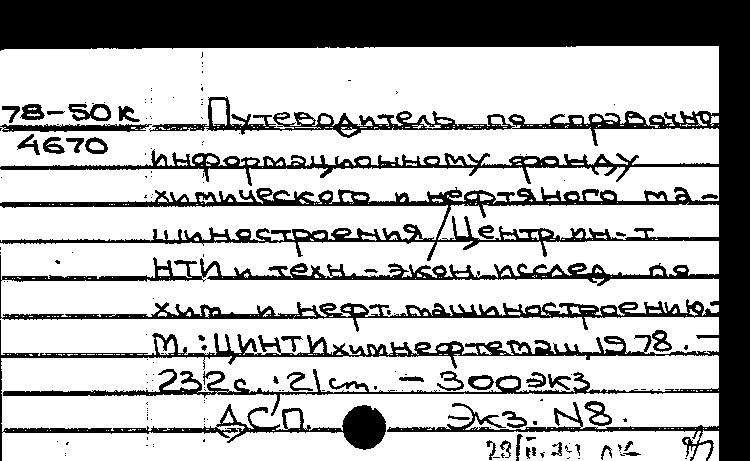 78-50к
4670
Путеводитель по справочно-
информационному фонду
химического и нефтяного ма-
шиностроения / Центр. ин-т
НТИ и техн.-экон. исслед. по
хим. и нефт. машиностроению.-
М.: ЦИНТИхимнефтемаш, 1978. -
232 с.; 21 см. - 300 экз
ДСП. Экз. N8.